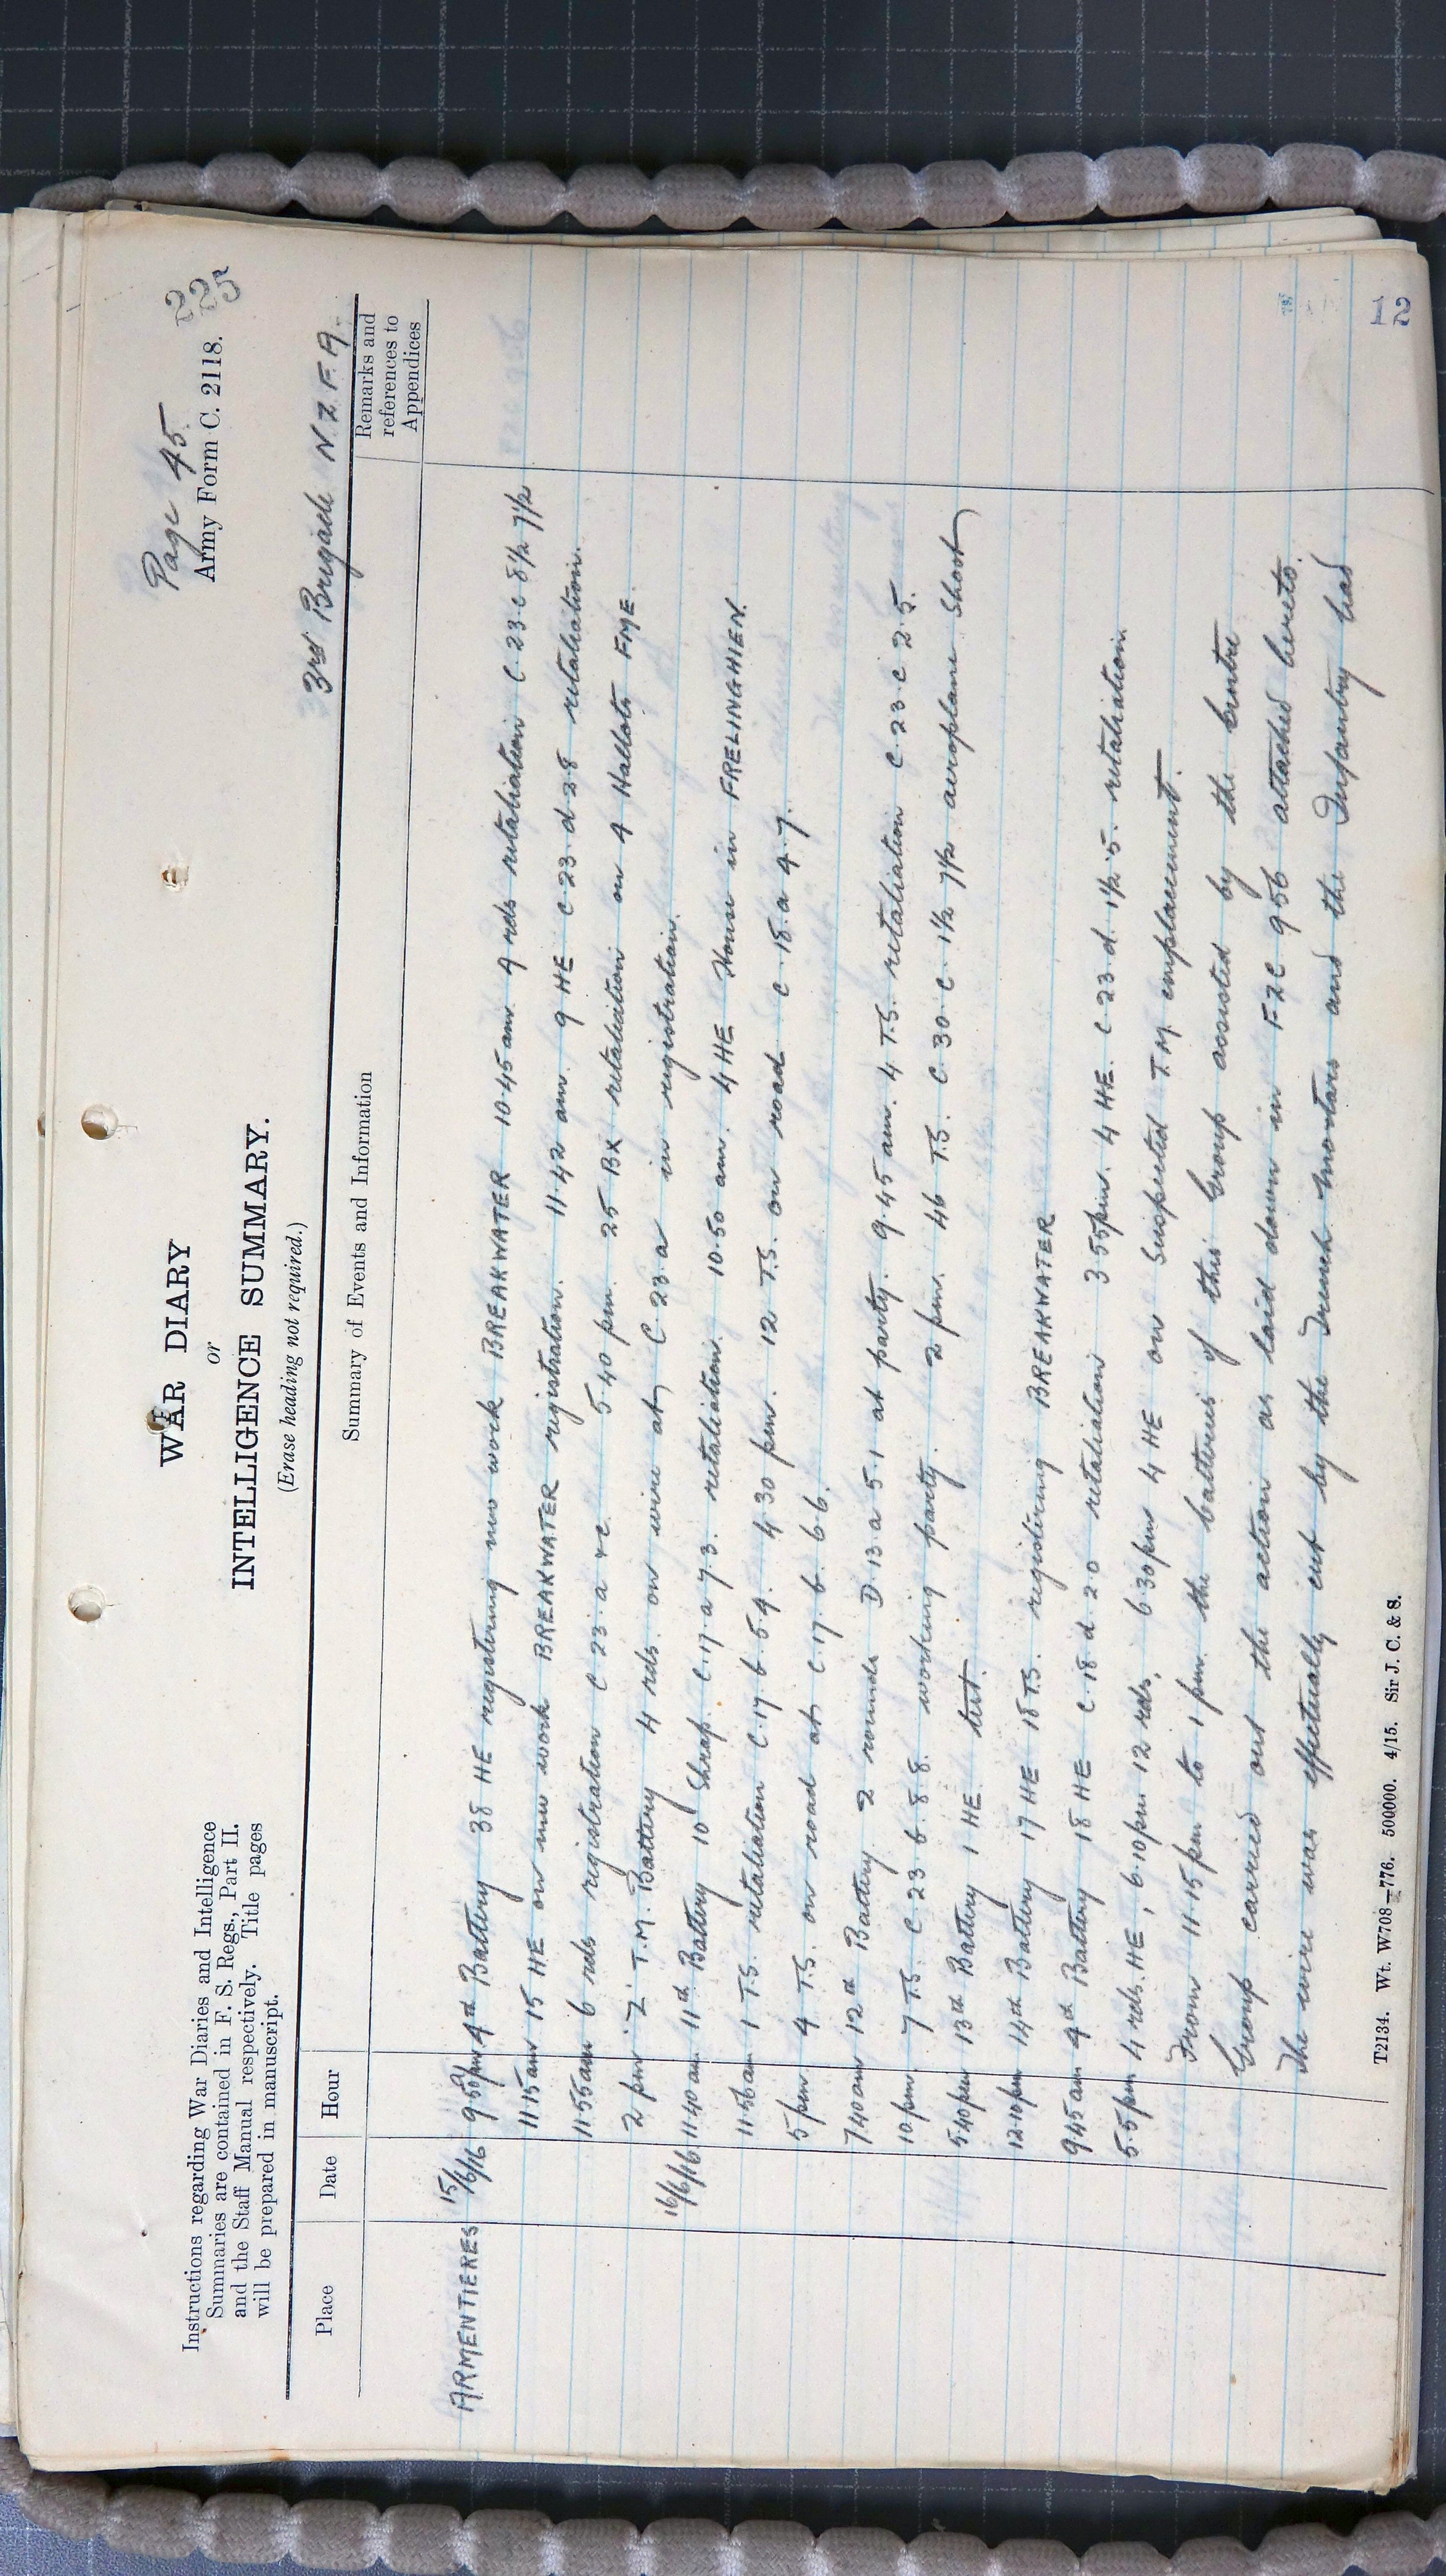 Page 45
225
Army Form C. 2118.
WAR DIARY
or
INTELLIGENCE SUMMARY.
(Erase heading not required.)
Instructions regarding War Diaries and Intelligence
Summaries are contained in F. S. Regs., Part II.
and the Staff Manual respectively. Title pages
will be prepared in manuscript.
3rd Brigade N.Z.F.A.
Place Date Hour Summary of Events and Information Remarks and references to Appendices
ARMENTIERES 15/6/16 9.50 4th Battery 38 HE registering new work BREAKWATER 10.45 am. 9 rds retaliation C.23.c 8½ 7½
11.15 am 15 HE on new work BREAKWATER registration. 11.42 am. 9 HE C.23.d 2.8 retaliation.
11.55 am 6 rds registration C.23.a & c. 5.40 pm. 25 BX retaliation on 4 Hallots FME.
2 pm 'Z' T.M. Battery 4 rds. on wire at C.23.a in registration.
16/6/16 11.40 am. 11th Battery 10 Shrap C.17.a 7.3. retaliation. 10.50 am. 4 HE House in FRELINGHIEN.
11.56 am 1 T.S. retaliation C.17.b.5.9. 4.30 pm. 12 T.S. on road C.18.a 4.7.
5 pm. 4 T.S. on road at C.17.b.6.6.
7.40 am 12th Battery 2 rounds D.13.a 5.1 at party. 9.45 am. 4 T.S. retaliation C.23.c 2.5.
10. pm. 7 T.S. C.23.b.8.8. working party. 2 pm. 46 T.S. C.30.c 1½ 7½ aeroplane shoot
5.40 pm 13th Battery 1 HE test.
12.10 pm 14th Battery 17 HE 18 T.S. registering BREAKWATER
9.45 am 4th Battery 18 HE C.18.d 2.0 retaliation 3.55 pm. 4 HE. C.23.d.1½.5. retaliation.
5.5 pm 4 rds. HE, 6.10 pm 12 rds, 6.30 pm 4 HE on suspected T.M. emplacement.
From 11.15 pm to 1 pm the batteries of this Group assisted by the Centre
Group carried out the action as laid down in F.2.C 956 attached hereto.
The wire was effectually cut by the Trench mortars and the Infantry had
T2134. Wt. W708—776. 500000. 4/15. Sir J. C. & S.
12